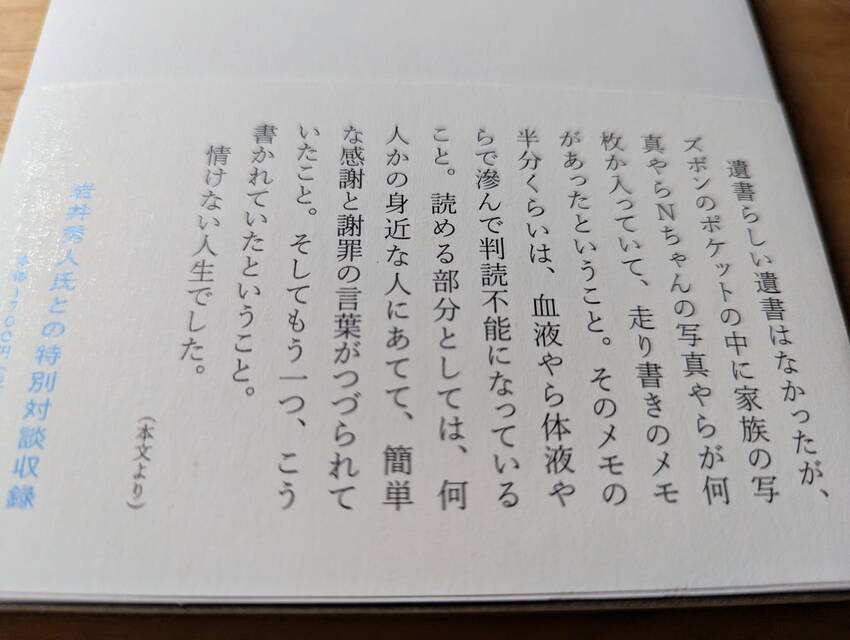 遺書らしい遺書はなかったが、
ズボンのポケットの中に家族の写
真やらNちゃんの写真やらが何
枚か入っていて、走り書きのメモ
があったということ。そのメモの
半分くらいは、血液やら体液や
らで滲んで判読不能になっている
こと。読める部分としては、何
人かの身近な人にあてて、簡単
な感謝と謝罪の言葉がつづられて
いたこと。そしてもう一つ、こう
書かれていたということ。
情けない人生でした。
(本文より)
岩井秀人氏との特別対談収録
本体1700円